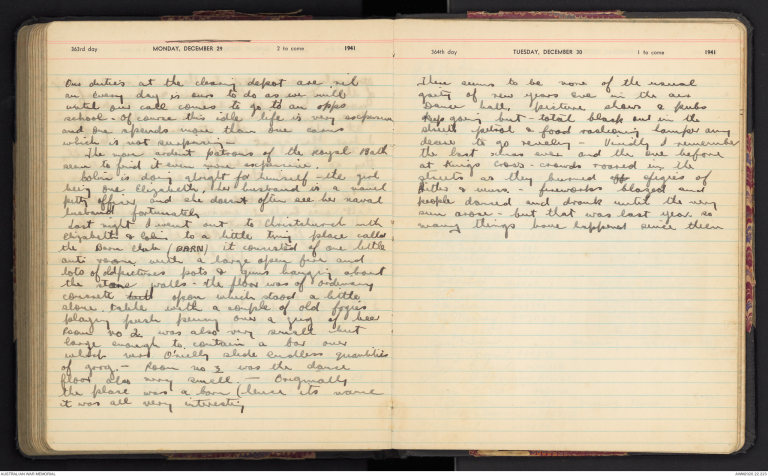 363rd day MONDAY, DECEMBER 29 2 to come 1941
Our duties at the clearing depot are nil
an every day is ours to do as we will
until our call comes to go to an opps
school - Of course this idle life is very expensive
and one spends more than one earns
which is not surprising -
The more ardent patrons of the Royal Bath
seem to find it even more expensive.
Colin is doing alright for himself - the girl
being one Elizabeth, her husband is a naval
petty officer and she doesnt often see her naval
husband fortunately
Last night I went out to Christchurch with
Elizabeth & Colin to a little tiny place called
the Barn Club (BARN) it consisted of one little
anti room with a large open fire and
lots of old pictures pots & guns hanging about
the stone walls - the floor was of ordinary
concrete upon which stood a little
stone table with a couple of old fogies
playing push penny over a jug of beer
Room no 2 was also very small but
large enough to contain a bar over
which Mrs O'Reilly slide endless quantities
of grog. - Room no 3 was the dance
floor also very small - Originally
the place was a barn (hence its name
it was all very interesting
364th day TUESDAY, DECEMBER 30 1 to come 1941
There seems to be none of the usual
gaity of new years eve in the air
Dance hall, picture shows & pubs
keep going but - total black out in the
streets petrol & food rationing hamper any
desire to go revelry - Vividly I remember
the last xmas eve and the one before
at Kings Cross - crowds roared in the
streets as they burned effigies of
Hitler & muss - fireworks blazed and
people danced and drank until the very
sun arose - but that was last year so
many things have happened since then
AUSTRALIAN WAR MEMORIAL